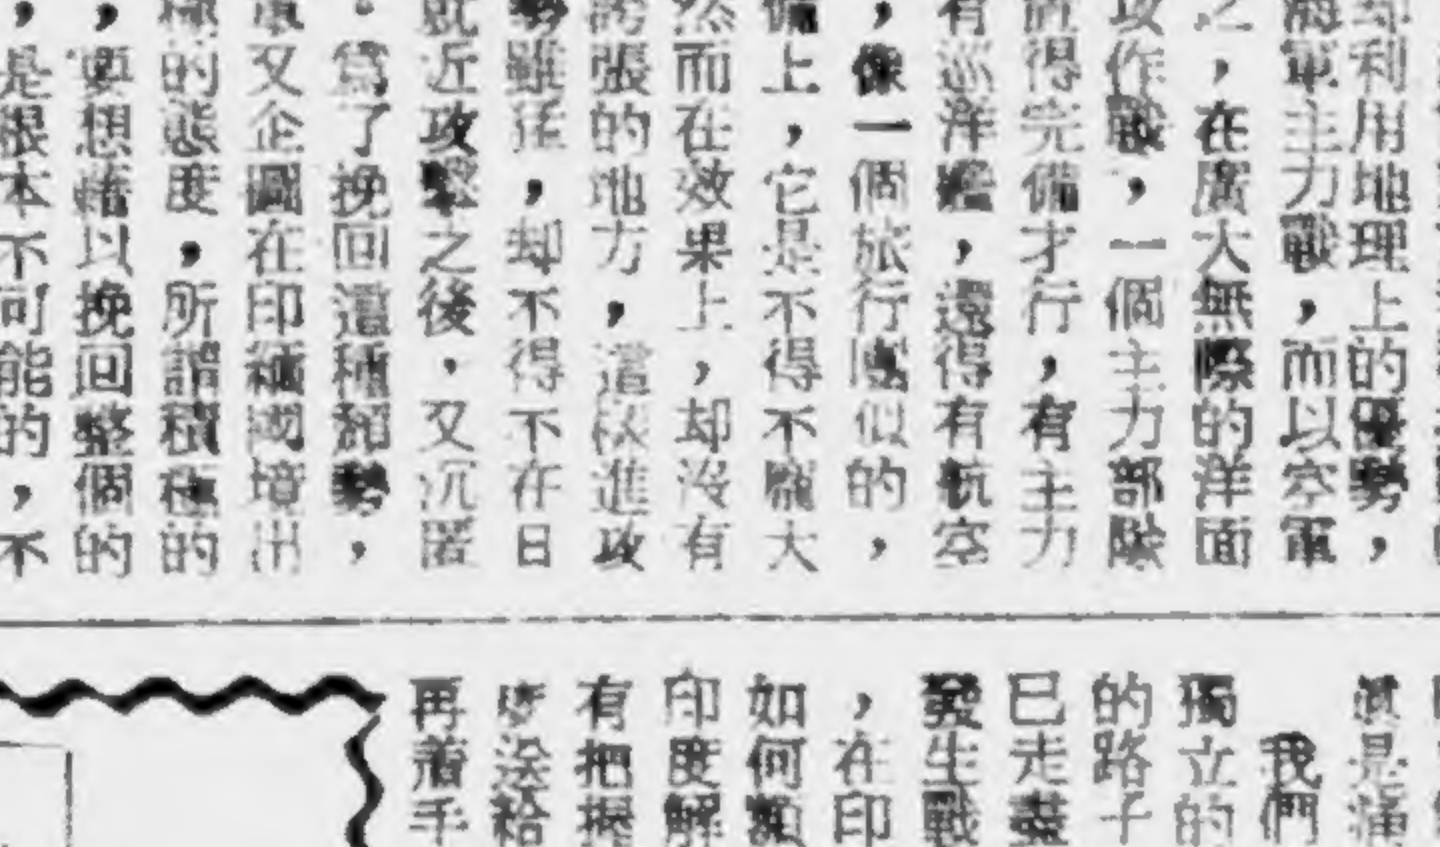 却利用地理上的優勢，
海軍主力戰，而以空軍
之，在廣大無際的洋面
攻作戰，一個主力部隊
得完備才行，有主力
有巡洋艦，還得有航空
，像一個旅行團似的，
備上，它是不得不龐大
然而在效果上，却沒有
誇張的地方，這樣進攻
勢雖猛，却不得不在日
就近攻擊之後，又沉匿
。爲了挽回這種頹勢，
軍又企圖在印緬國境出
極的態度，所謂積極的
，要想藉以挽回整個的
，是根本不可能的，不
眞是
我們
獨立的
的路子
已走盡
發生戰
，在印
如何
印度解
有把握
送給
再着手